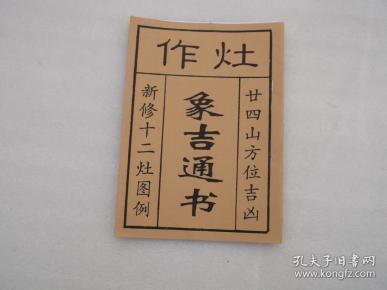 作灶
廿四山方位吉凶
象吉通书
新修十二灶图例
孔夫子旧书网
www.kongfz.com